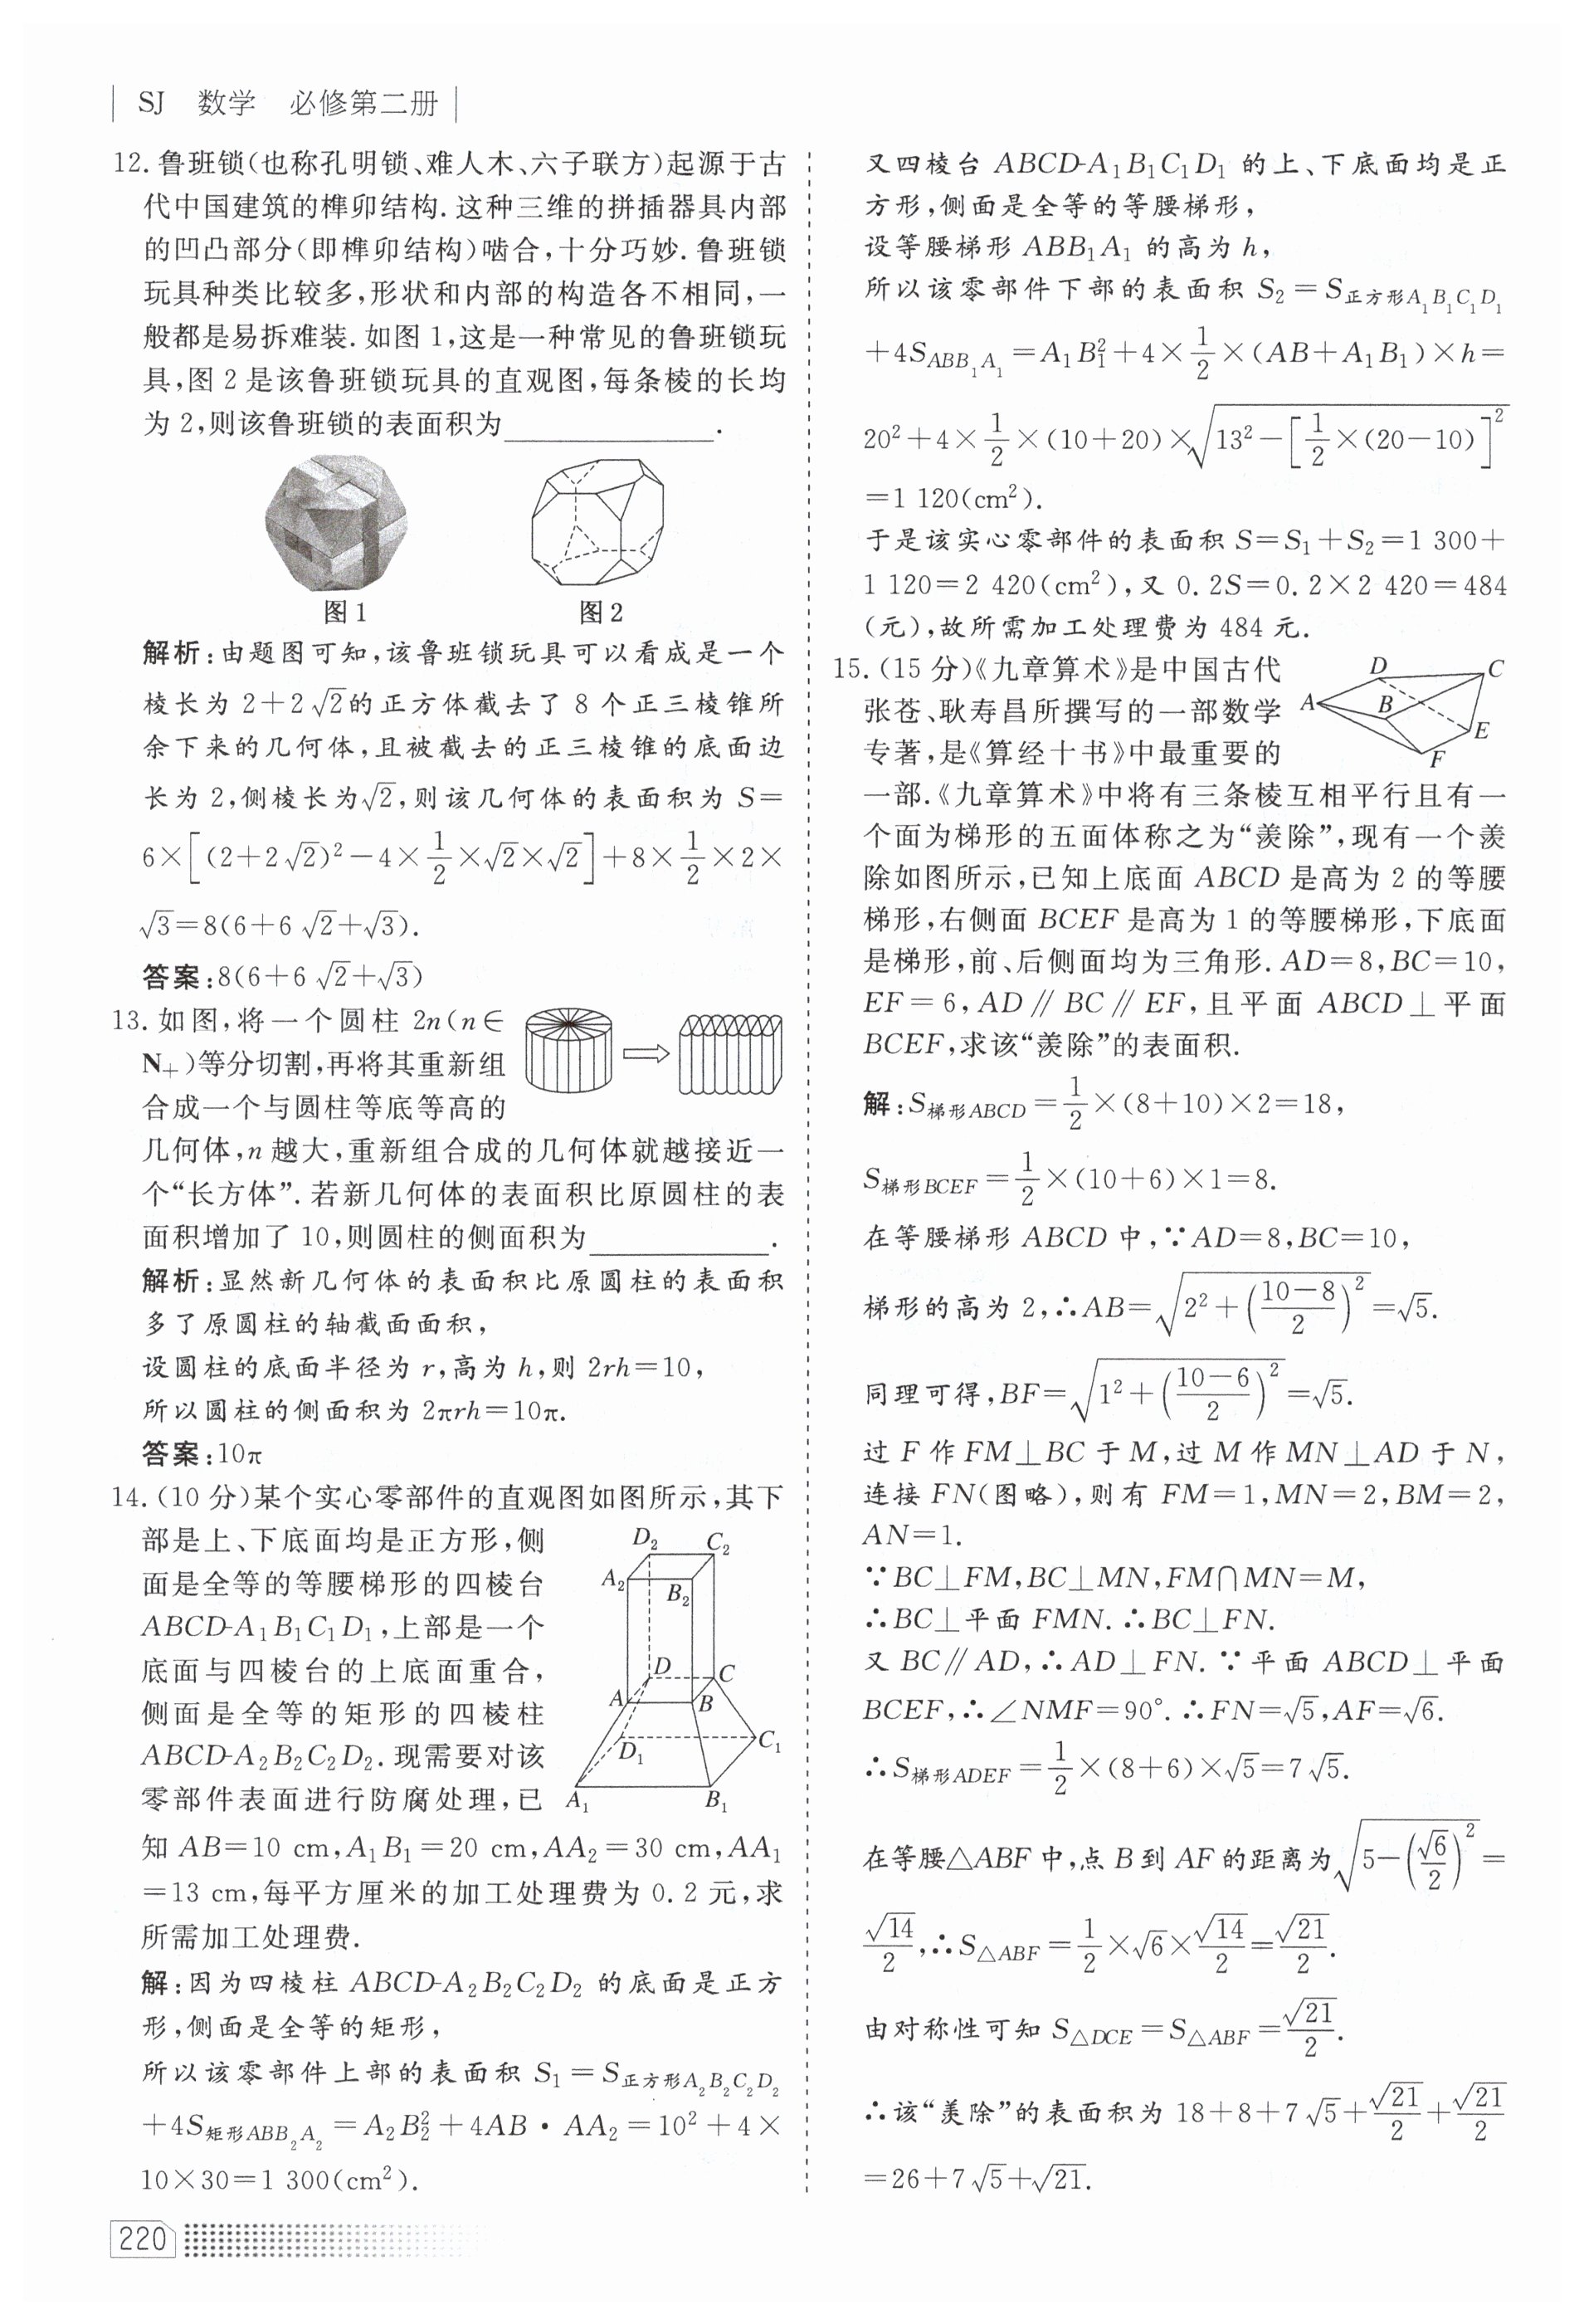 SJ 数学 必修第二册
12. 鲁班锁(也称孔明锁、难人木、六子联方)起源于古
代中国建筑的榫卯结构. 这种三维的拼插器具内部
的凹凸部分(即榫卯结构)啮合,十分巧妙. 鲁班锁
玩具种类比较多,形状和内部的构造各不相同,一
般都是易拆难装. 如图 1,这是一种常见的鲁班锁玩
具,图 2 是该鲁班锁玩具的直观图,每条棱的长均
为 2,则该鲁班锁的表面积为________.
图 1 图 2
解析:由题图可知,该鲁班锁玩具可以看成是一个
棱长为 2+2√2的正方体截去了 8 个正三棱锥所
余下来的几何体,且被截去的正三棱锥的底面边
长为 2,侧棱长为√2,则该几何体的表面积为 S=
6×[(2+2√2)²-4×1/2×√2×√2]+8×1/2×2×
√3=8(6+6√2+√3).
答案:8(6+6√2+√3)
13. 如图,将一个圆柱 2n(n∈
N₊)等分切割,再将其重新组
合成一个与圆柱等底等高的
几何体,n 越大,重新组合成的几何体就越接近一
个“长方体”. 若新几何体的表面积比原圆柱的表
面积增加了 10,则圆柱的侧面积为________.
解析:显然新几何体的表面积比原圆柱的表面积
多了原圆柱的轴截面面积,
设圆柱的底面半径为 r,高为 h,则 2rh=10,
所以圆柱的侧面积为 2πrh=10π.
答案:10π
14. (10 分)某个实心零部件的直观图如图所示,其下
部是上、下底面均是正方形,侧
面是全等的等腰梯形的四棱台
ABCD-A₁B₁C₁D₁,上部是一个
底面与四棱台的上底面重合,
侧面是全等的矩形的四棱柱
ABCD-A₂B₂C₂D₂. 现需要对该
零部件表面进行防腐处理,已
D₂ C₂
A₂ B₂
D C
A B
D₁ C₁
A₁ B₁
知 AB=10 cm,A₁B₁=20 cm,AA₂=30 cm,AA₁
=13 cm,每平方厘米的加工处理费为 0.2 元,求
所需加工处理费.
解:因为四棱柱 ABCD-A₂B₂C₂D₂ 的底面是正方
形,侧面是全等的矩形,
所以该零部件上部的表面积 S₁=S正方形A₂B₂C₂D₂
+4S矩形ABB₂A₂=A₂B₂²+4AB·AA₂=10²+4×
10×30=1 300(cm²).
220
又四棱台 ABCD-A₁B₁C₁D₁ 的上、下底面均是正
方形,侧面是全等的等腰梯形,
设等腰梯形 ABB₁A₁ 的高为 h,
所以该零部件下部的表面积 S₂=S正方形A₁B₁C₁D₁
+4S ABB₁A₁=A₁B₁²+4×1/2×(AB+A₁B₁)×h=
20²+4×1/2×(10+20)×√(13²-[1/2×(20-10)]²)
=1 120(cm²).
于是该实心零部件的表面积 S=S₁+S₂=1 300+
1 120=2 420(cm²),又 0.2S=0.2×2 420=484
(元),故所需加工处理费为 484 元.
15. (15 分)《九章算术》是中国古代
张苍、耿寿昌所撰写的一部数学
专著,是《算经十书》中最重要的
D C
A B
E
F
一部.《九章算术》中将有三条棱互相平行且有一
个面为梯形的五面体称之为“羡除”,现有一个羡
除如图所示,已知上底面 ABCD 是高为 2 的等腰
梯形,右侧面 BCEF 是高为 1 的等腰梯形,下底面
是梯形,前、后侧面均为三角形. AD=8,BC=10,
EF=6,AD∥BC∥EF,且平面 ABCD⊥平面
BCEF,求该“羡除”的表面积.
解:S梯形ABCD=1/2×(8+10)×2=18,
S梯形BCEF=1/2×(10+6)×1=8.
在等腰梯形 ABCD 中,∵AD=8,BC=10,
梯形的高为 2,∴AB=√(2²+((10-8)/2)²)=√5.
同理可得,BF=√(1²+((10-6)/2)²)=√5.
过 F 作 FM⊥BC 于 M,过 M 作 MN⊥AD 于 N,
连接 FN(图略),则有 FM=1,MN=2,BM=2,
AN=1.
∵BC⊥FM,BC⊥MN,FM∩MN=M,
∴BC⊥平面 FMN. ∴BC⊥FN.
又 BC∥AD,∴AD⊥FN. ∵平面 ABCD⊥平面
BCEF,∴∠NMF=90°. ∴FN=√5,AF=√6.
∴S梯形ADEF=1/2×(8+6)×√5=7√5.
在等腰△ABF 中,点 B 到 AF 的距离为√(5-(√6/2)²)=
√14/2,∴S△ABF=1/2×√6×√14/2=√21/2.
由对称性可知 S△DCE=S△ABF=√21/2.
∴该“羡除”的表面积为 18+8+7√5+√21/2+√21/2
=26+7√5+√21.